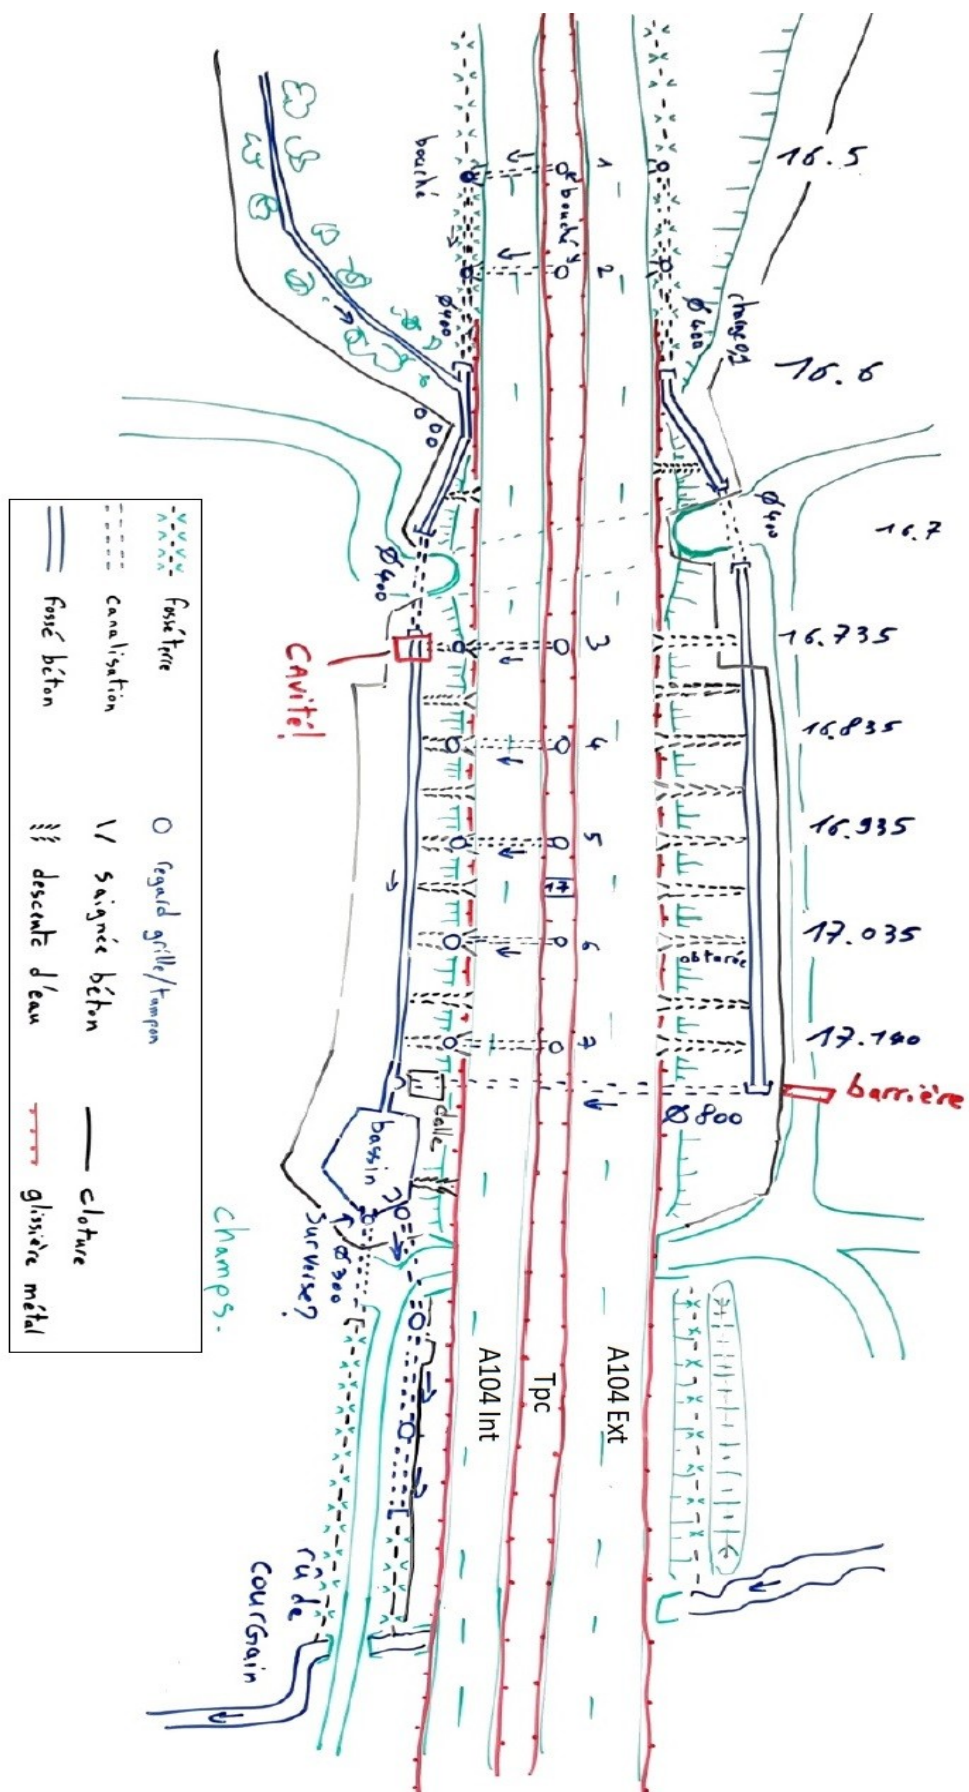 16.5
16.6
16.7
16.735
16.835
16.935
17.035
17.140
barrière
Ø 800
Ø 400
Ø 400
obturée
1
2
3
4
5
6
7
"bouché"
17
bouché
Ø 400
Ø 400
CAvité!
dalle
bassin
surverse?
Ø 300
champs.
A104 Ext
Tpc
A104 Int
rû de
courGrain
fossé terre
canalisation
fossé béton
regard grille/tampon
saignée béton
descente d'eau
cloture
glissière métal